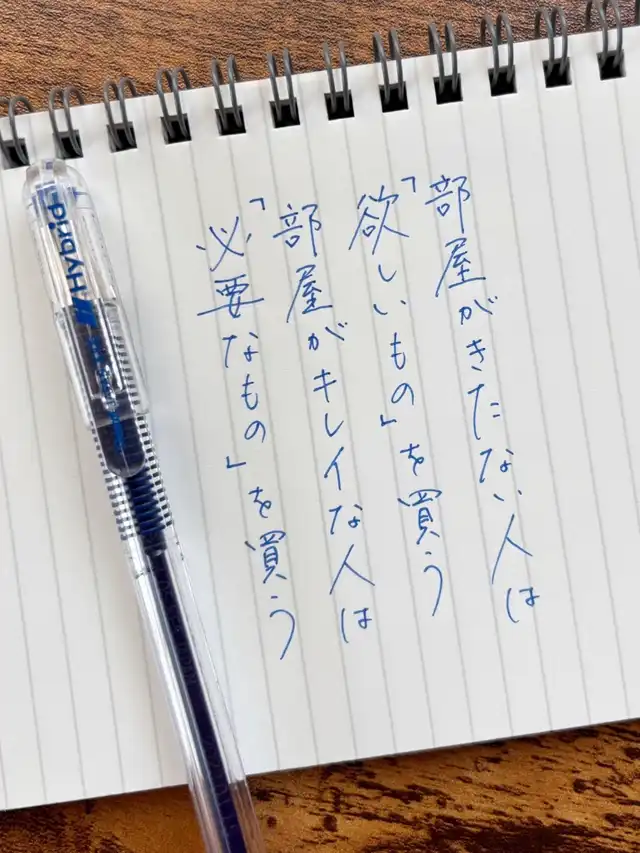 部屋がきたない人は
「欲しいもの」を買う
部屋がキレイな人は
「必要なもの」を買う
Hybrid